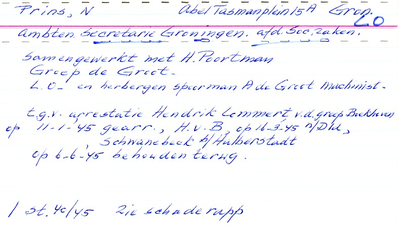 Prins, N Abel Tasmanplein 15A Gron.
LO
Ambten. Secretarie Groningen. afd. Soc. zaken.
Samengewerkt met H. Poortman
Groep de Groot.
L.O. en herbergen spoorman A de Groot machinist.
t.g.v. arrestatie Hendrik Lommert v.d. groep Buekhoven
op 11-1-'45 gearr., H.v.B, op 16-3-45 n/Dld,
Schwanebeck b/Halberstadt
op 6-6-45 behouden terug.
1 St. 40/45 zie schaderapp